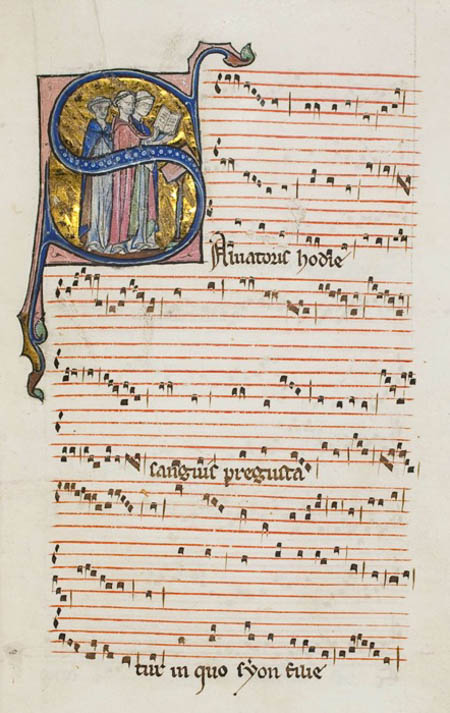 Salvatoris hodie
sanguis pregusta
tur in quo syon filie